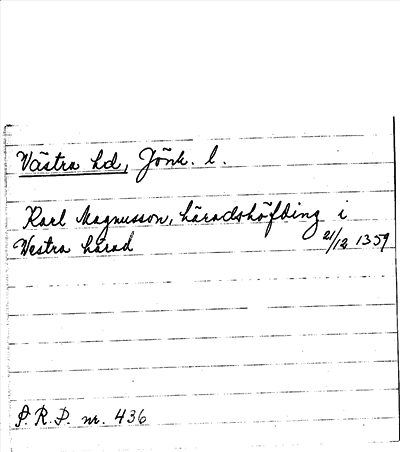 Västra hd, Jönk. l.
Karl Magnusson, häradshöfding i
Westra härad 21/12 1359
P. R. P. nr. 436